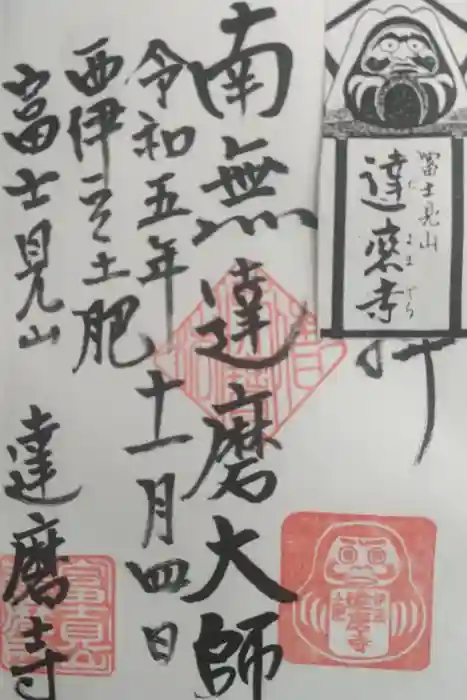 富士見山
達磨寺
だるまでら
拝
南無達磨大師
令和五年十一月四日
西伊豆土肥
富士見山 達磨寺